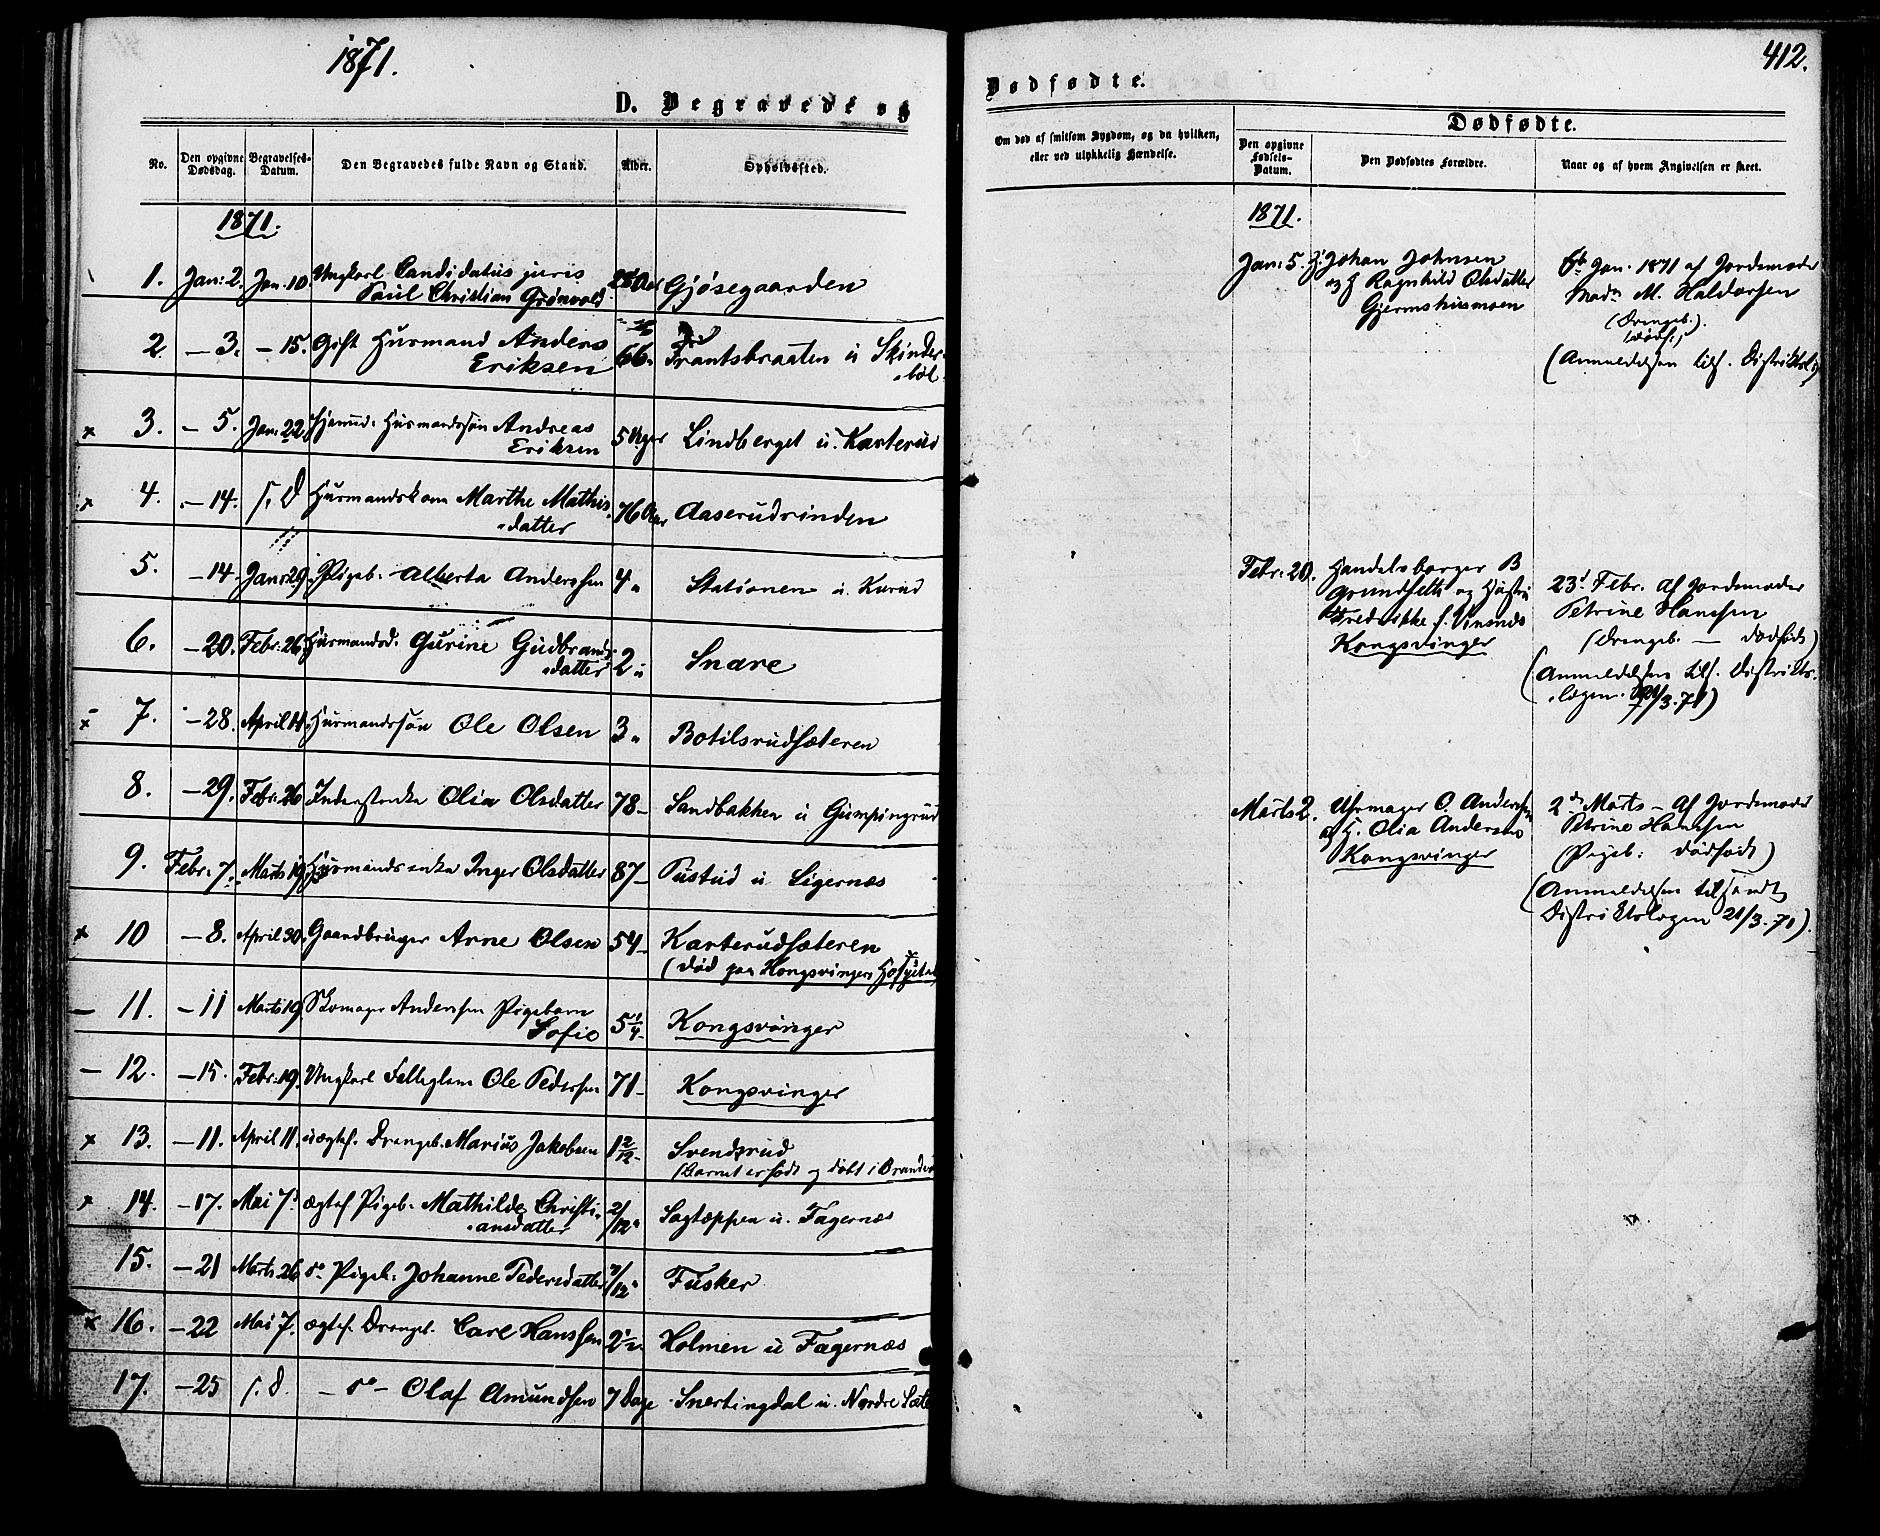 1871.
D. Begravede og
No. Den opgivne Dødsdag. Begravelses-Datum. Den Begravedes fulde Navn og Stand. Alder. Opholdssted.
1871.
1. Jan: 2. Jan. 10 Ungkarl Candidatus juris
Paul Christian Grønvold Aar Gjøsegaarden
2 — 3. — 15. Gift Husmand Anders
Eriksen 66 " Frantsbraaten u Skinder-
bøl
x 3. — 5. Jan: 22 Husmandssøn Andreas
Eriksen 5 Uger Lindberget u. Karterud
x 4. — 14. s. D Husmandskone Marthe Mathis-
datter 76 Aar Aaserudrinden
5. — 14. Jan: 29. Pigeb. Alberta Anderssen 4 " Stationen u. Kurud
6. — 20. Febr: 26 Husmandsd. Gurine Gudbrands-
datter 2 " Snare
x 7. — 28. April 11. Husmandssøn Ole Olsen 3 " Botilsrudsæteren
8. — 29. Febr. 26 Inderstenke Olia Olsdatter 78 — Sandbakken u Gumpingrud
9. Febr: 7. Marts 19 Husmandsenke Inger Olsdatter 87 — Pustud u. Ligernæs
x 10 — 8. April 30. Gaardbruger Arne Olsen 54 — Karterudsæteren
(død paa Kongsvingers Hospital
— 11. — 11 Marts 19. Skomager Anderssen Pigebarn
Sofie 5 1/4 — Kongsvinger
— 12. — 15. Febr: 19. Ungkarl Ole Pederssen 71 — Kongsvinger
x 13. — 11. April 11. uægtef. Drengeb. Marius Jakobsen 1 2/12 — Svendsrud
(Barnet er født og døbt i Brandv
x 14. — 17. Mai 7. ægtef Pigeb. Mathilde Christi-
ansdatter 2/12 " Sagtøppen u. Fagernæs
15. — 21 Marts 26 do. Pigeb. Johanne Pedersdatter /12 " Fusker
x 16. — 22 Mai 7. ægtef. Drengeb. Carl Hanssen 2 1/2 Holmen u Fagernæs
17. — 25 s. d. — do — Olaf Amundsen 7 Dage Snertingdal u. Nordre Sæte
412.
Dødfødte.
Om død af smitsom Sygdom, og da hvilken, eller ved ulykkelig Hændelse.
Dødfødte.
Den opgivne Fødsels-Datum. Den Dødfødtes Forældre. Naar og af hvem Angivelsen er skeet.
1871.
Jan: 5. Johan Johnsen
og H Ragnhild Olsdatter
Gjermshusmoen
6te Jan. 1871 af Jordemoder
Madm M. Haldorsen
(Drengeb.)
(dødf.)
(Anmeldelsen tils. Distriktsl
Febr: 20. Handelsborger B
Grundseth og Hustru
Fredrikke f.
Kongsvinger
23d Febr. af Jordemoder
Petrine Hanssen
(Drengeb. — dødfødt)
(Anmeldelsen tils. Distrikts-
lægen 21/3.71)
Marts 2. Uhrmager O. Anderssen
og H. Olia Andersen
Kongsvinger
2den Marts — Af Jordemoder
Petrine Hanssen
(Pigeb: dødfødt)
(Anmeldelsen tilsendt
Distriktslægen 21/3.71).